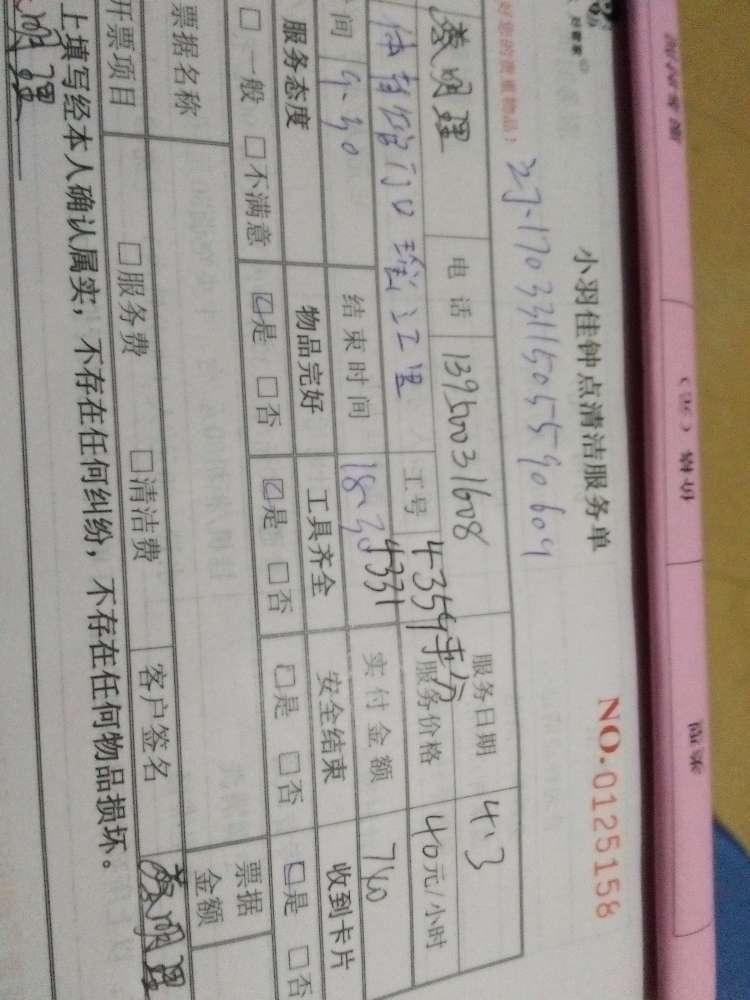 小羽佳钟点清洁服务单
NO.0125158
好您的贵重物品!
电话 13950031608 服务日期 4.3
体育馆门口 工号 4354 4331 服务价格 40元/小时
间 9.30 结束时间 18.30 实付金额 760
服务态度 物品完好 工具齐全 安全结束 收到卡片
□一般 □不满意 ☑是 □否 ☑是 □否 □是 □否 □是 □否
票据名称 票据金额
开票项目 □服务费 □清洁费 客户签名
上填写经本人确认属实，不存在任何纠纷，不存在任何物品损坏。